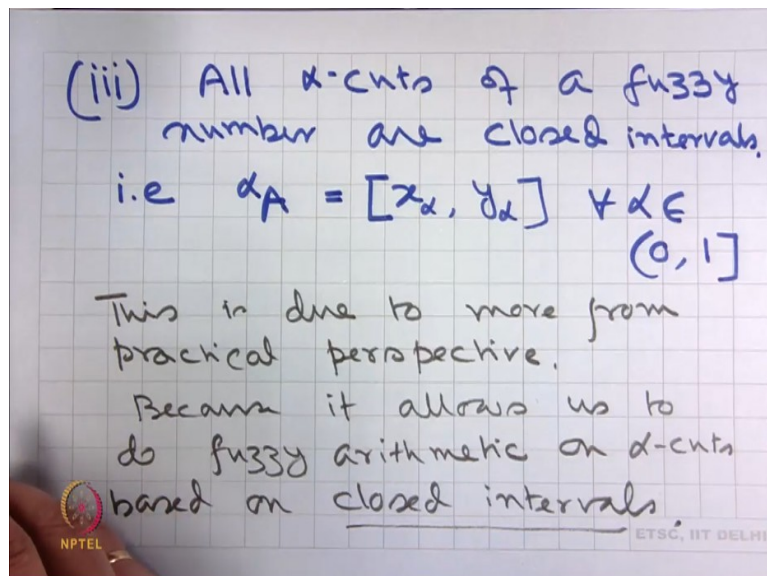 (iii) All α-cuts of a fuzzy
number are closed intervals.
i.e αA = [xα, yα] ∀ α ∈
(0, 1]
This is due to more from
practical perspective.
Because it allows us to
do fuzzy arithmetic on α-cuts
based on closed intervals.
NPTEL
ETSC, IIT DELHI